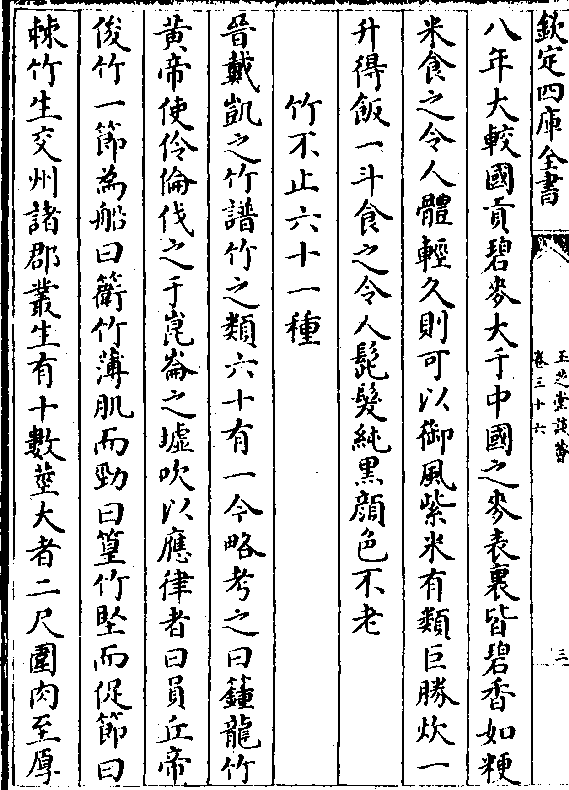 欽定四庫全書
玉芝堂談薈
卷三十六
三
八年大較國貢碧麥大于中國之麥表裏皆碧香如粳
米食之令人體輕久則可以御風紫米有類巨勝炊一
升得飯一斗食之令人髭髮純黒顔色不老
竹不止六十一種
晉戴凱之竹譜竹之類六十有一今略考之曰鍾龍竹
黄帝使伶倫伐之于崑崙之墟吹以應律者曰員丘帝
俊竹一節為船曰䉛竹薄肌而勁曰篁竹堅而促節曰
棘竹生交州諸郡叢生有十數莖大者二尺圍肉至厚